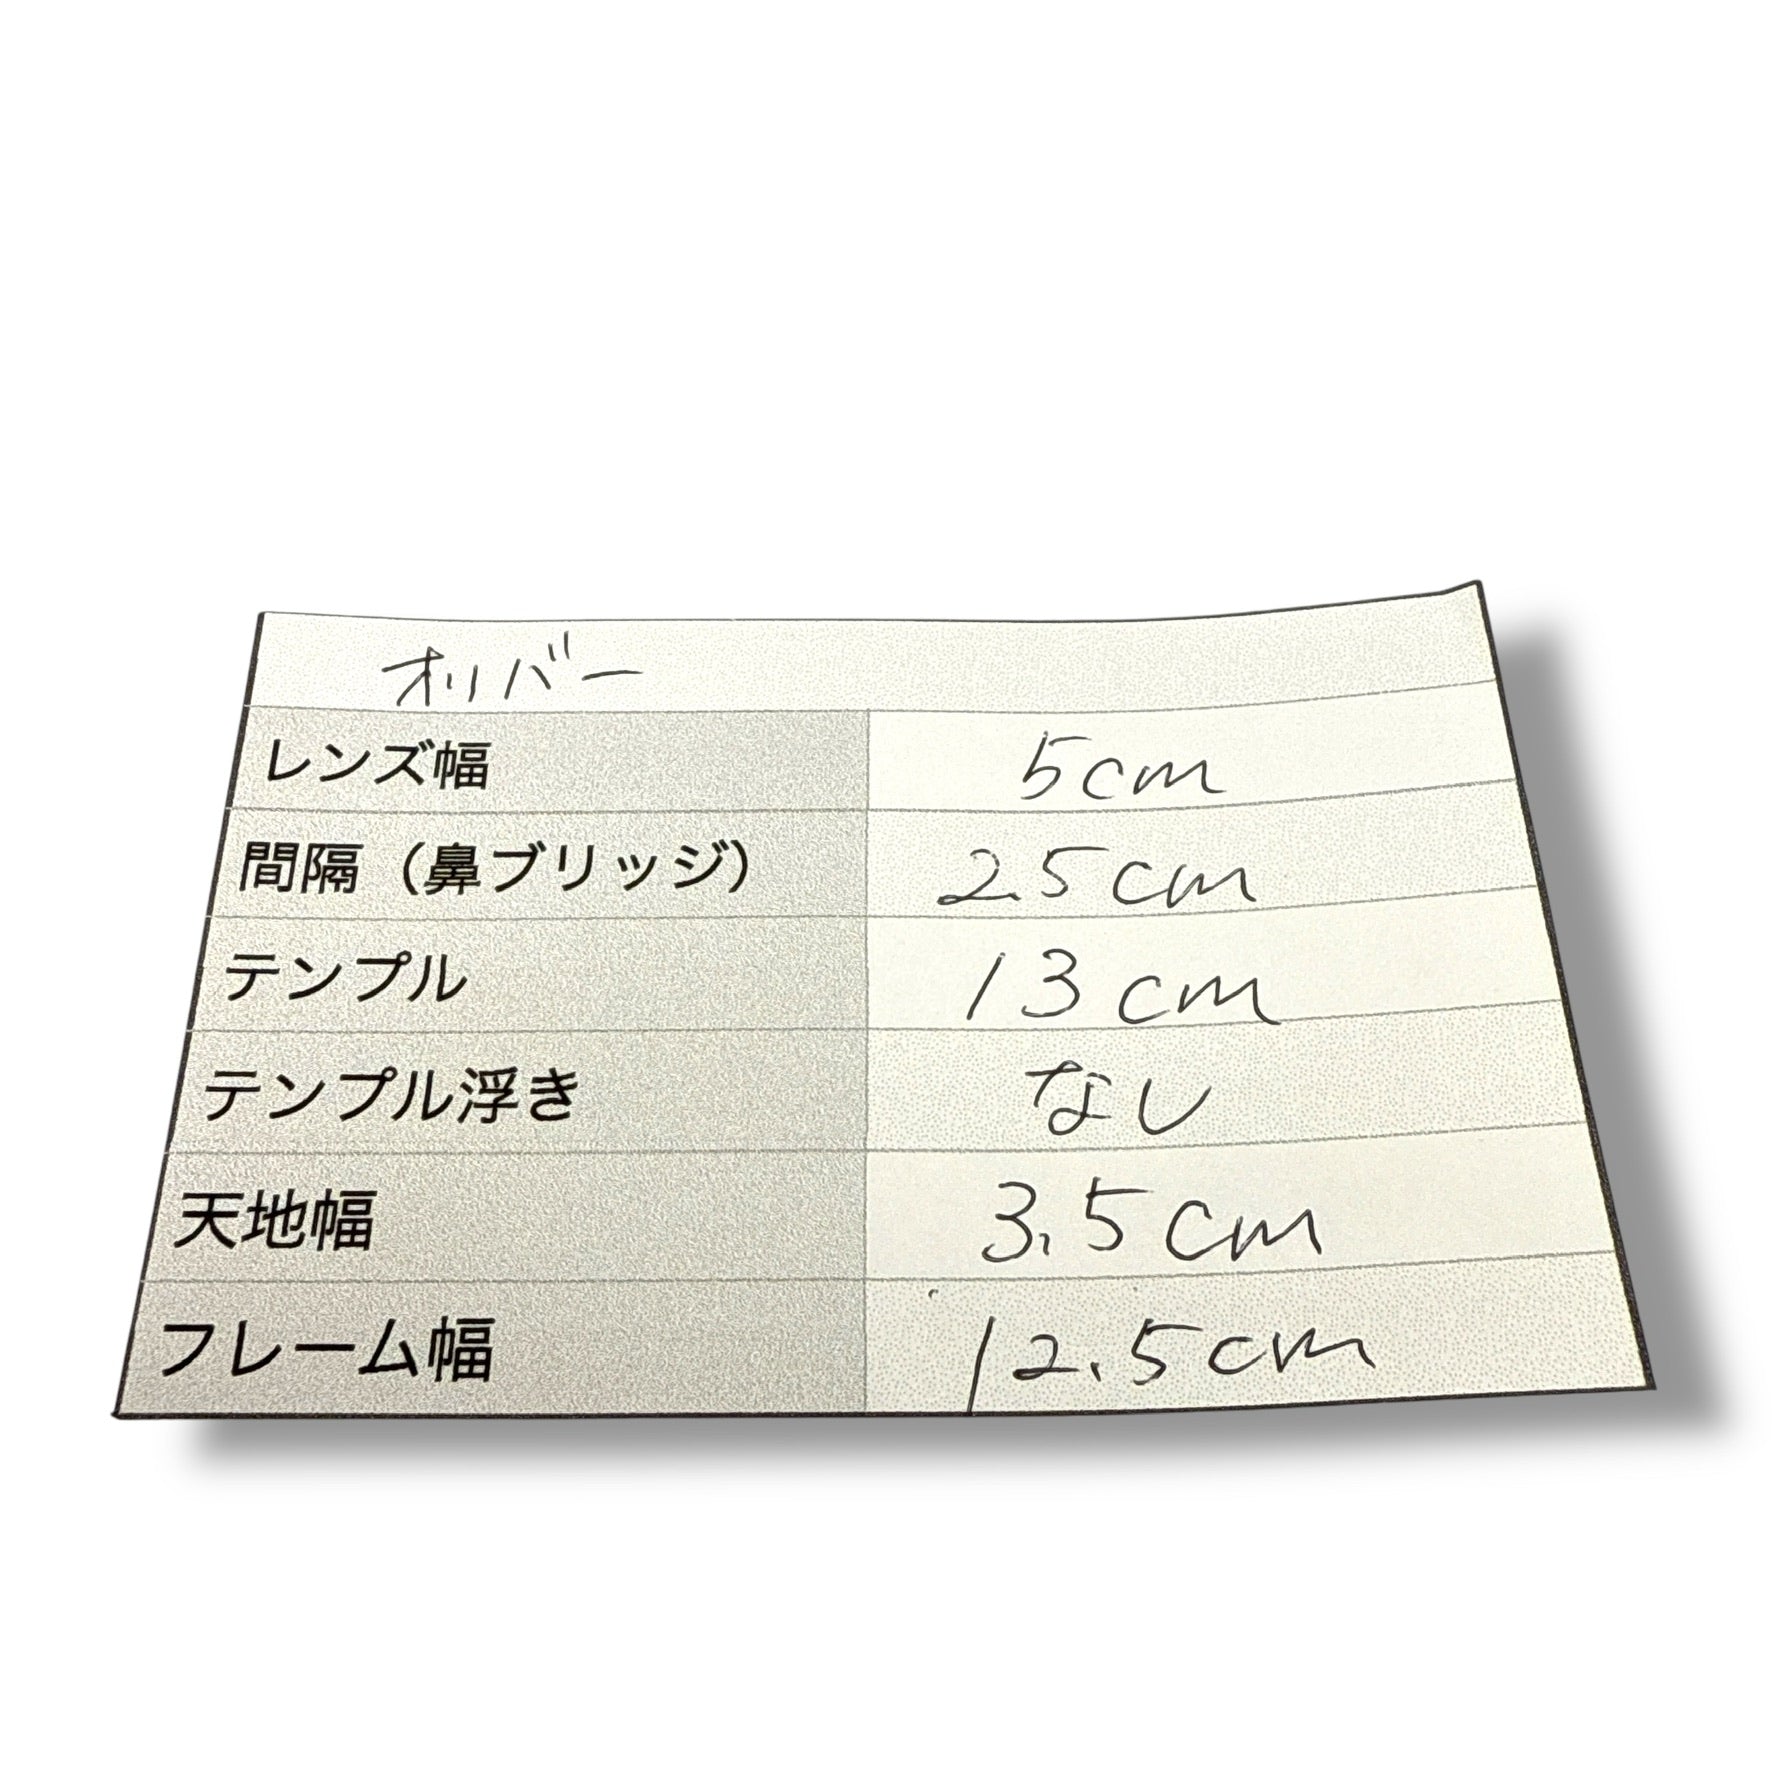 オリバー
レンズ幅 5cm
間隔（鼻ブリッジ） 2.5cm
テンプル 13cm
テンプル浮き なし
天地幅 3.5cm
フレーム幅 12.5cm